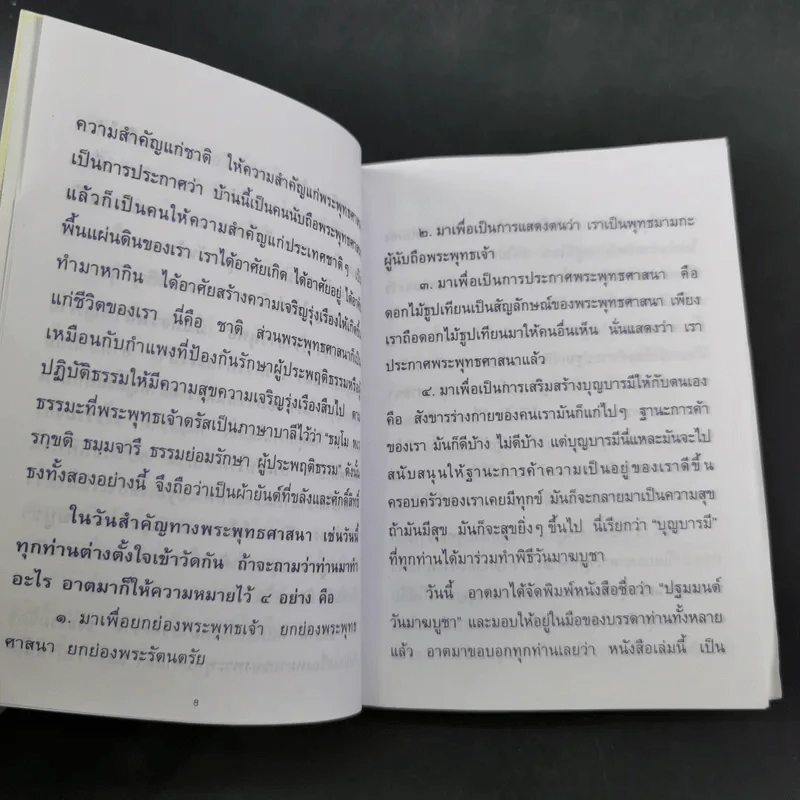 ความสำคัญแก่ชาติ ให้ความสำคัญแก่พระพุทธศาสนา
เป็นการประกาศว่า บ้านนี้เป็นคนนับถือพระพุทธศาสนา
แล้วก็เป็นคนให้ความสำคัญแก่ประเทศชาติๆ เป็น
พื้นแผ่นดินของเรา เราได้อาศัยเกิด ได้อาศัยอยู่ ได้อาศัย
ทำมาหากิน ได้อาศัยสร้างความเจริญรุ่งเรืองให้เกิดขึ้น
แก่ชีวิตของเรา นี่คือ ชาติ ส่วนพระพุทธศาสนาก็เป็น
เหมือนกับกำแพงที่ป้องกันรักษาผู้ประพฤติธรรมหรือผู้
ปฏิบัติธรรมให้มีความสุขความเจริญรุ่งเรืองสืบไป ตาม
ธรรมะที่พระพุทธเจ้าตรัสเป็นภาษาบาลีไว้ว่า "ธมฺโม หเว
รกฺขติ ธมฺมจารึ ธรรมย่อมรักษา ผู้ประพฤติธรรม" ดังนั้น
ธงทั้งสองอย่างนี้ จึงถือว่าเป็นผ้ายันต์ที่ขลังและศักดิ์สิทธิ์
ในวันสำคัญทางพระพุทธศาสนา เช่นวันนี้
ทุกท่านต่างตั้งใจเข้าวัดกัน ถ้าจะถามว่าท่านมาทำ
อะไร อาตมาก็ให้ความหมายไว้ ๔ อย่าง คือ
๑. มาเพื่อยกย่องพระพุทธเจ้า ยกย่องพระพุทธ
ศาสนา ยกย่องพระรัตนตรัย
8
๒. มาเพื่อเป็นการแสดงตนว่า เราเป็นพุทธมามกะ
ผู้นับถือพระพุทธเจ้า
๓. มาเพื่อเป็นการประกาศพระพุทธศาสนา คือ
ดอกไม้ธูปเทียนเป็นสัญลักษณ์ของพระพุทธศาสนา เพียง
เราถือดอกไม้ธูปเทียนมาให้คนอื่นเห็น นั่นแสดงว่า เรา
ประกาศพระพุทธศาสนาแล้ว
๔. มาเพื่อเป็นการเสริมสร้างบุญบารมีให้กับตนเอง
คือ สังขารร่างกายของคนเรามันก็แก่ไปๆ ฐานะการค้า
ของเรา มันก็ดีบ้าง ไม่ดีบ้าง แต่บุญบารมีนี่แหละมันจะไป
สนับสนุนให้ฐานะการค้าความเป็นอยู่ของเราดีขึ้น
ครอบครัวของเราเคยมีทุกข์ มันก็จะกลายมาเป็นความสุข
ถ้ามันมีสุข มันก็จะสุขยิ่งๆ ขึ้นไป นี่เรียกว่า "บุญบารมี"
ที่ทุกท่านได้มาร่วมทำพิธีวันมาฆบูชา
วันนี้ อาตมาได้จัดพิมพ์หนังสือชื่อว่า "ปฐมมนต์
วันมาฆบูชา" และมอบให้อยู่ในมือของบรรดาท่านทั้งหลาย
แล้ว อาตมาขอบอกทุกท่านเลยว่า หนังสือเล่มนี้ เป็น